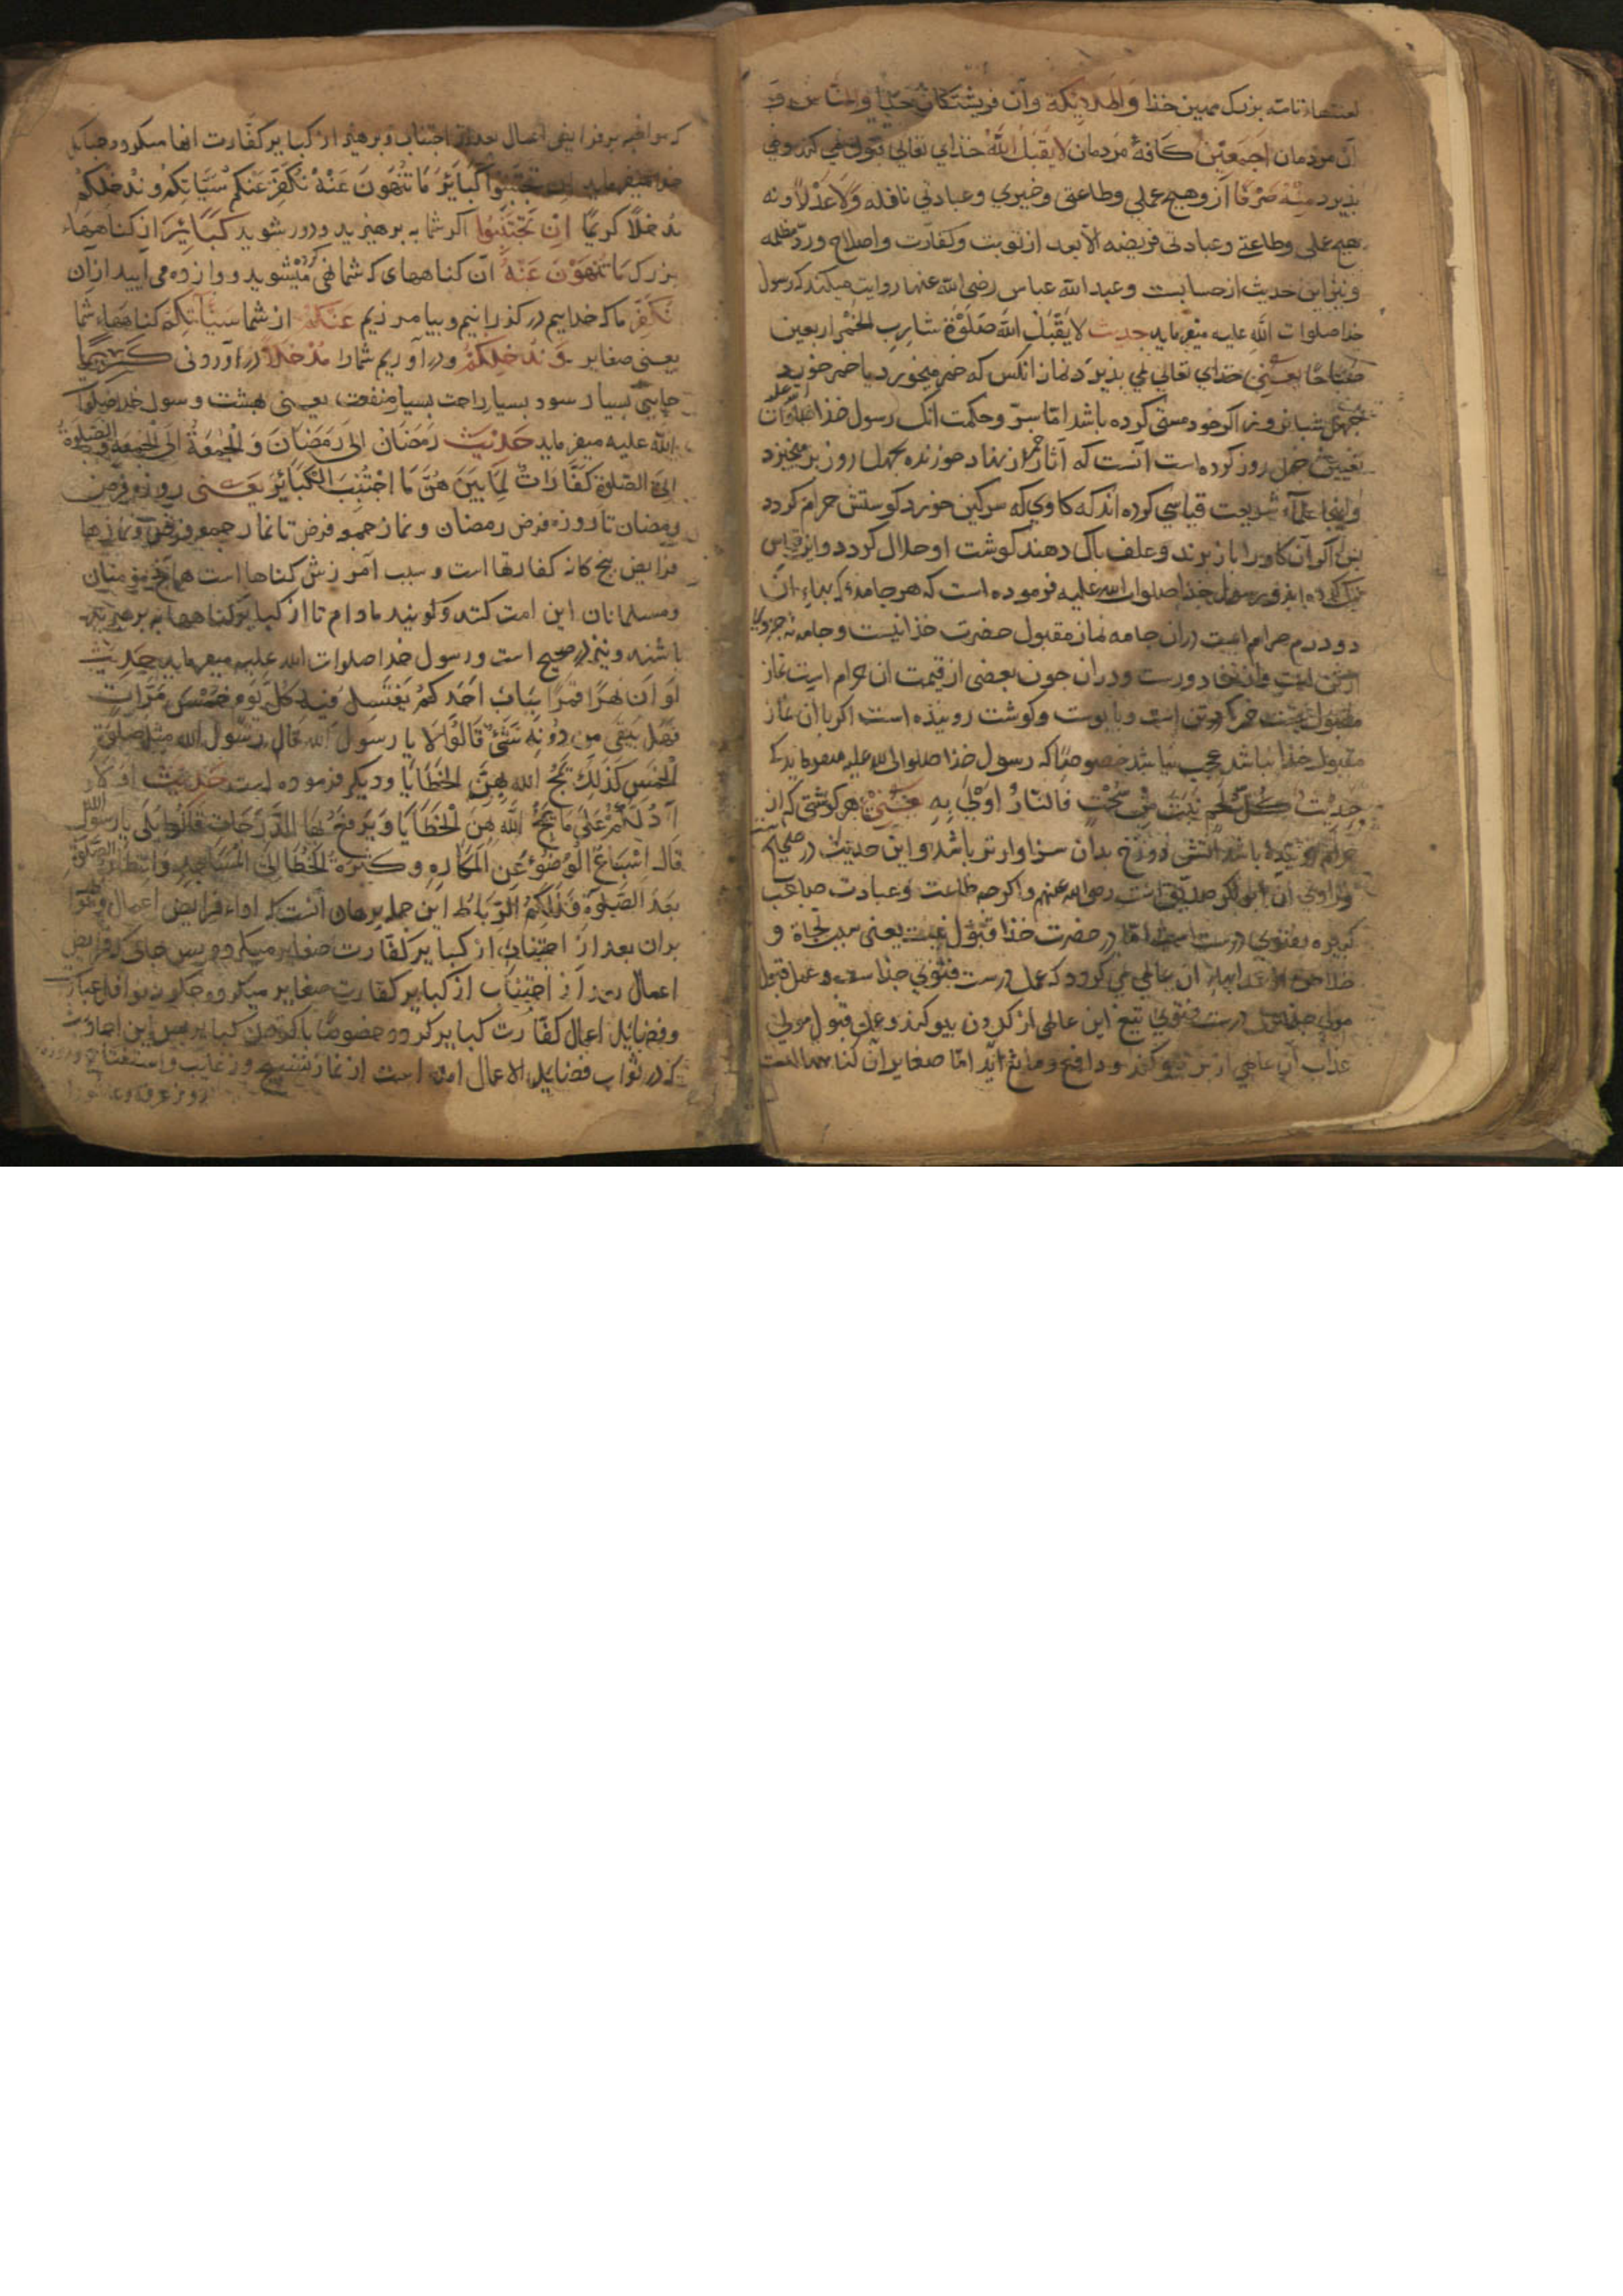 لعنتهاء تامّه بزرگ مبین خذا وَالْمَلَائِكَة وآن فریشتکان
آن مردمان اَجمَعیْن کافهٔ مَردمان لایَقبَلُ اللّهُ خذای تعالی قبول نمی کند ونمی
بذیرد مِنْهُ صَرْفًا از و هیچ عملی وطاعتی وخیری وعبادتی نافله وَلَاعَدْلًا ونه
هیچ عملی وطاعتی وعبادتی فریضه الا بعد از توبت وکفارت واصلاح وردّ مظلمه
ونیز این حدیث از حسابست وعبد الله عباس رضی الله عنهما روایت میکند که رسول
خدا صلوات الله علیه میفرماید حدیث لایَقْبَلُ اللّهُ صَلوٰةَ شارِبِ الخَمْرِ اربعین
صَبَاحًا یعنی خدای تعالی نمی بذیرد نماز انکس که خمر میخورد یا خمر خورد
چهل شبانروز اکر خود مستی کرده باشد امّا سرّ وحکمت انک رسول خذا
تعیین چهل روز کرده است آنست که آثار خمر از نهاد خورنده بچهل روز بر میخیزد
واینجا علماء شریعت قیاسی کرده اند که کاوی که سرکین خورد کوشتش حرام کردد
بس اکر آن کاو را باز برند وعلف باک دهند کوشت او حلال کردد واین قیاس
رسول خذا صلوات الله علیه فرموده است که هر جامهٔ که بهاء ان
دو درم حرام است دران جامه نماز مقبول حضرت خذا نیست وجامه
دورست ودران جون بعضی از قیمت ان حرام است نماز
مقبول نیست وبا بوست وکوشت رونیذه است اکر با ان نماز
مقبول خذا نباشد عجب نباشد خصوصًا که رسول خذا صلوات الله علیه میفرماید که
حدیث کُلُّ لَحْمٍ نَبَتَ مِنْ سُحْتٍ فَالنَّارُ اَوْلَی بِهِ یعنی هر کوشتی که از
حرام روئیده باشد آتش دوزخ بدان سزاوارتر باشد واین حدیث در صحاح
وراوی آن ابو بکر صدیق است رضی الله عنهم واکرچه طاعت وعبادت صاحب
کبیره بفتوی درست است امّا در حضرت خذا قبول نیست یعنی سبب نجاة و
ان عاصی نمی کردد که عمل درست فتوی جذاست وعمل قبول
درست فتوی تیغ این عالمی از کردن بیوکند وعمل قبول مولی
عذاب آن عاصی از بر بیوکند ودافع ومانع آید امّا صغایر آن کناههااست
که مواظبه بر فرایض اعمال بعد از اجتناب وبرهیز از کبایر کفّارت انها میکردد جنانک
خدا میفرماید اِن تَجْتَنِبُوا کَبَائِرَ مَا تُنْهَوْنَ عَنْهُ نُکَفِّرْ عَنْکُمْ سَیِّاٰتِکُمْ وَنُدْخِلْکُمْ
مُدْخَلًا کَریمًا اِنْ تَجْتَنِبُوا اکر شما به برهیزید ودور شوید کَبَائِرَ از کناههاء
بزرک مَا تُنْهَوْنَ عَنْهُ آن کناههای که شما نهی کرده میشوید وواز وه می آیید ازان
نُکَفِّرْ ما که خدایم در کذرانیم وبیامرزیم عَنْکُمْ از شما سَیِّاٰتِکُمْ کناههاء شما
یعنی صغایر وَنُدْخِلْکُمْ ودر آوریم شمارا مُدْخَلًا در آوردنی کَرِیمًا
جایی بسیار سود بسیار راحت بسیار منفعت یعنی بهشت ورسول خدا صلوات
الله علیه میفرماید حَدیْث رَمَضَان الیٰ رَمَضَانَ وَالْجُمُعَةُ الیَ الْجُمُعَةِ وَالصَّلوةُ
الیَ الصَّلوةِ کَفَّارَاتٌ لِمَا بَیْنَ هُنَّ مَا اجْتُنِبَ الْکَبَائِرَ یعنی روزه فرض
رمضان تا روزه فرض رمضان ونماز جمعه فرض تا نماز جمعه فرض ونمازها
فرایض بنج کانه کفارتها است وسبب آمرزش کناها است مؤمنان
ومسلمانان این امت کنند وکویند مادام تا از کبایر وکناهها به برهیزند
باشند ونیز در صحیح است ورسول خدا صلوات الله علیه میفرماید حدیث
لَو اَنَّ نَهَرًا بِبَابِ اَحَدِکُمْ یَغْتَسِلُ فیهِ کُلَّ یَوْمٍ خَمْسَ مَرَّاتٍ
فَهَلْ یَبْقَی مِن دَرَنِهِ شَیْءٌ قَالُوا لَا یا رسول الله قَال رسُول الله مثل صلوة
الْخَمسِ کَذَلِکَ یَمْحُ الله بِهِنَّ الخَطَایَا ودیکر فرموده است حَدیث اَفَلَا
اَدُلُّکُمْ عَلَیٰ مَا یَمْحُ اللّه بِهِنَّ الْخَطَایَا وَیَرفَعُ بِهَا الدَّرَجَات قَالُوا بَلَی یا رَسُولَ الله
قَالَ اِسْبَاغُ الْوُضُوْءِ عَنِ الْمَکَارِهِ وَکَثْرَةُ الخُطَا اِلَیَ الْمَسَاجِدِ وَانْتِظَارُ الصَّلوةِ
بَعْدَ الصَّلوٰةِ فَذٰلِکُمُ الرِّبَاط این جمله برهان آنست که اداء فرایض اعمال
بدان بعد از اجتناب از کبایر کفّارت صغایر میکردد وبس جای که فرایض
اعمال بعد از اجتناب از کبایر کفّارت صغایر میکردد جکونه نوافل عبادات
وفضایل اعمال کفّارت کبایر کردد خصوصًا باکردن کبایر بس این احادیث
که در ثواب فضایل الاعمال آمده است از نماز تسبیح ورغایب واستفتاح وروزه
روز عرفه وعاشورا